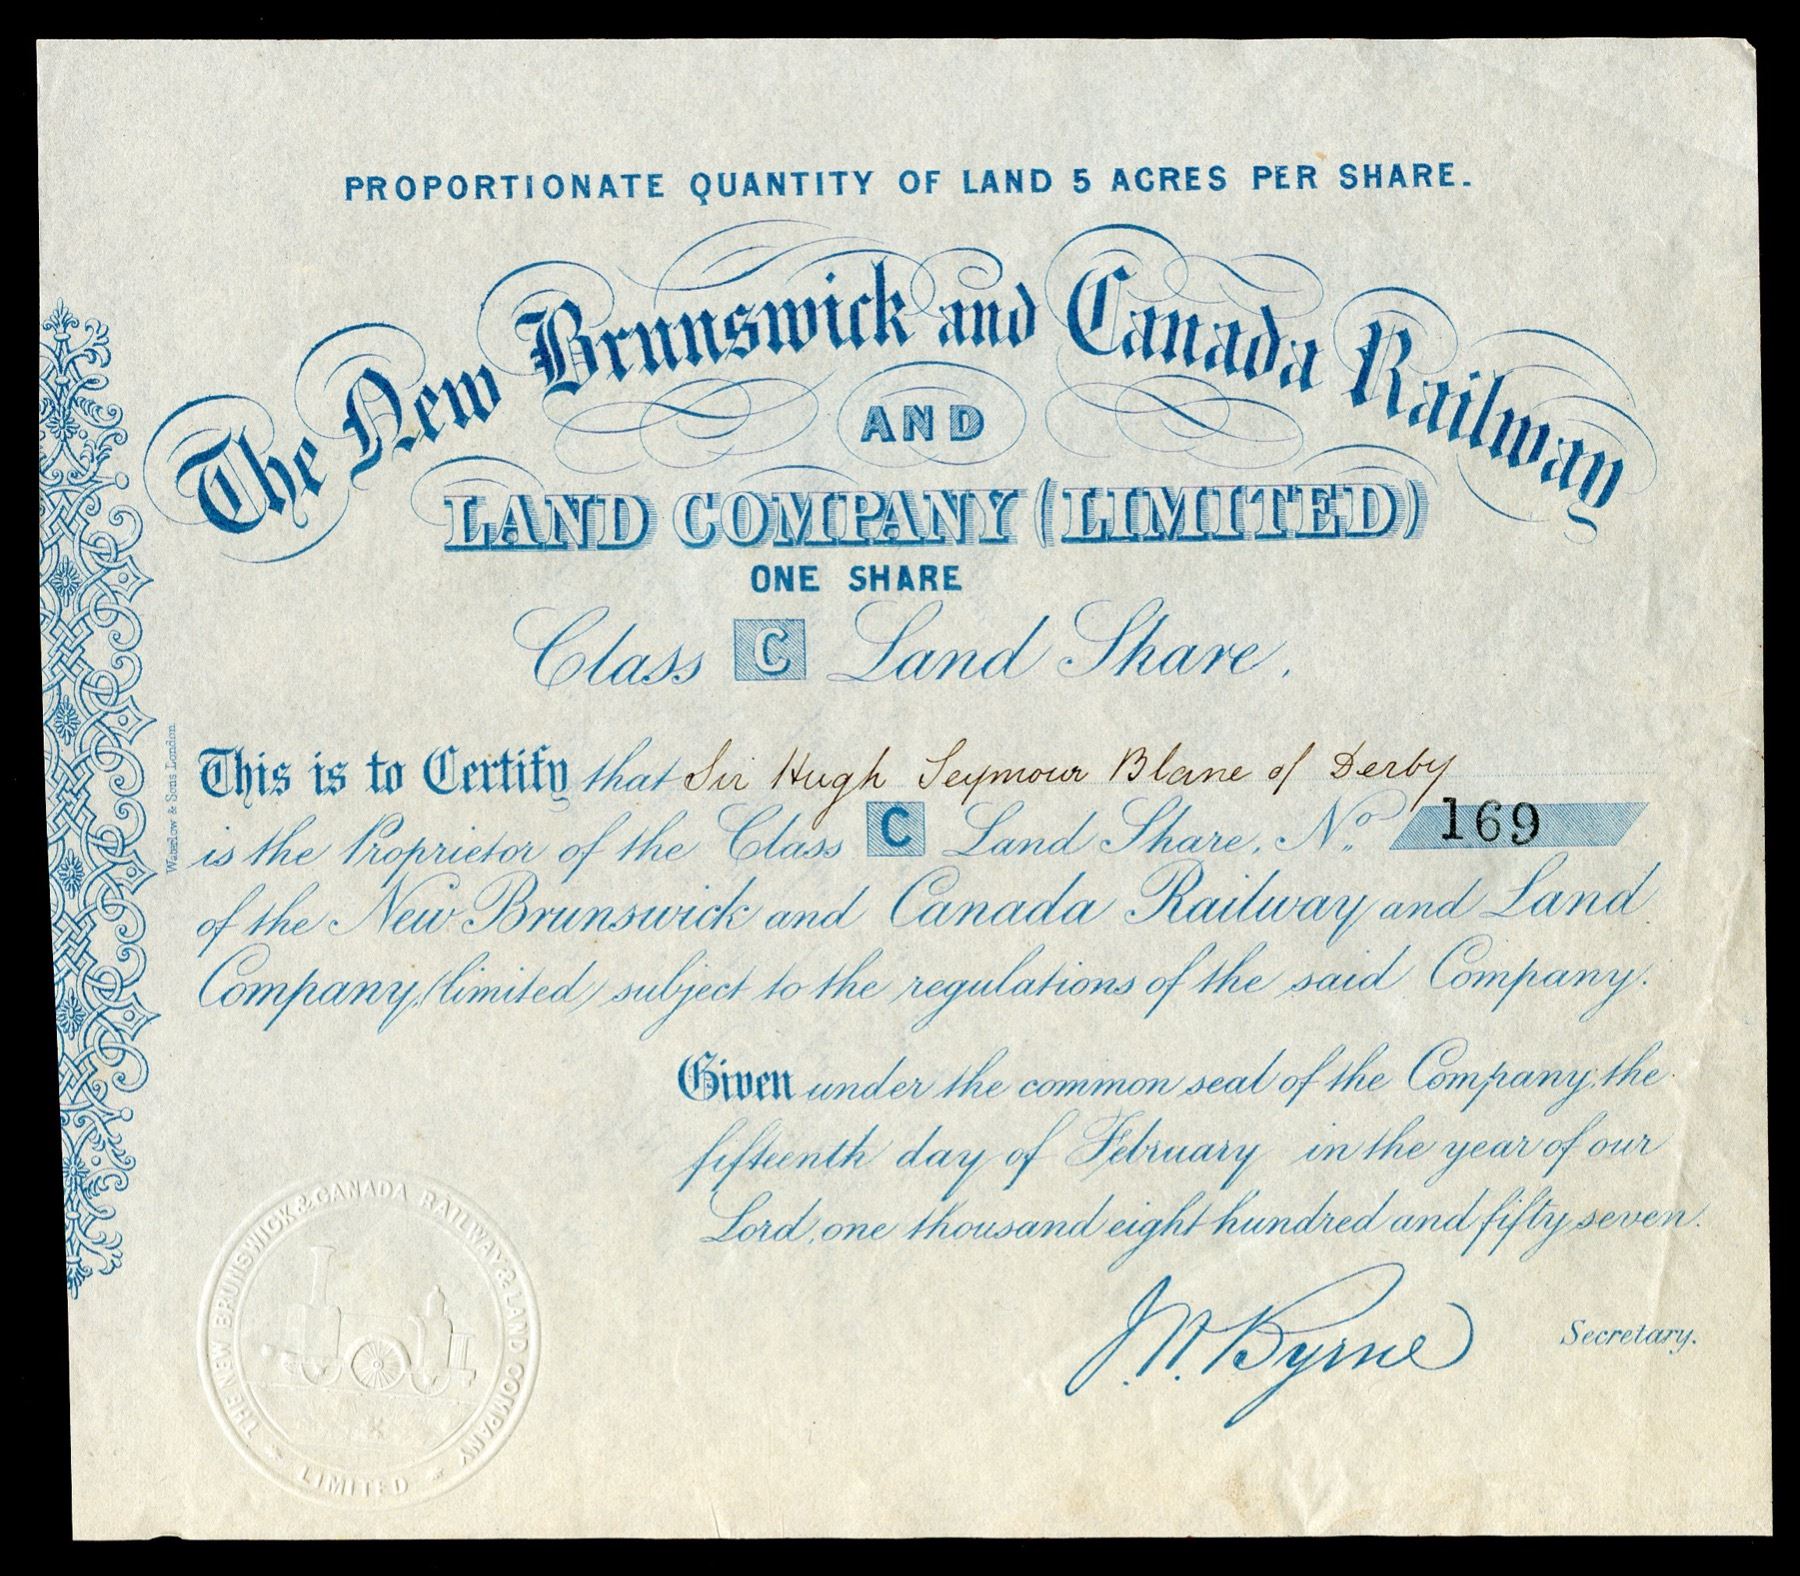 PROPORTIONATE QUANTITY OF LAND 5 ACRES PER SHARE.
The New Brunswick and Canada Railway
AND
LAND COMPANY (LIMITED)
ONE SHARE
Class C Land Share.
This is to Certify that Sir Hugh Seymour Blane of Derby
is the Proprietor of the Class C Land Share, No. 169
of the New Brunswick and Canada Railway and Land
Company, (limited) subject to the regulations of the said Company.
Given under the common seal of the Company, the
fifteenth day of February in the year of our
Lord, one thousand eight hundred and fifty seven.
J. W. Byrne Secretary.
Waterlow & Sons London
THE NEW BRUNSWICK & CANADA RAILWAY & LAND COMPANY
LIMITED